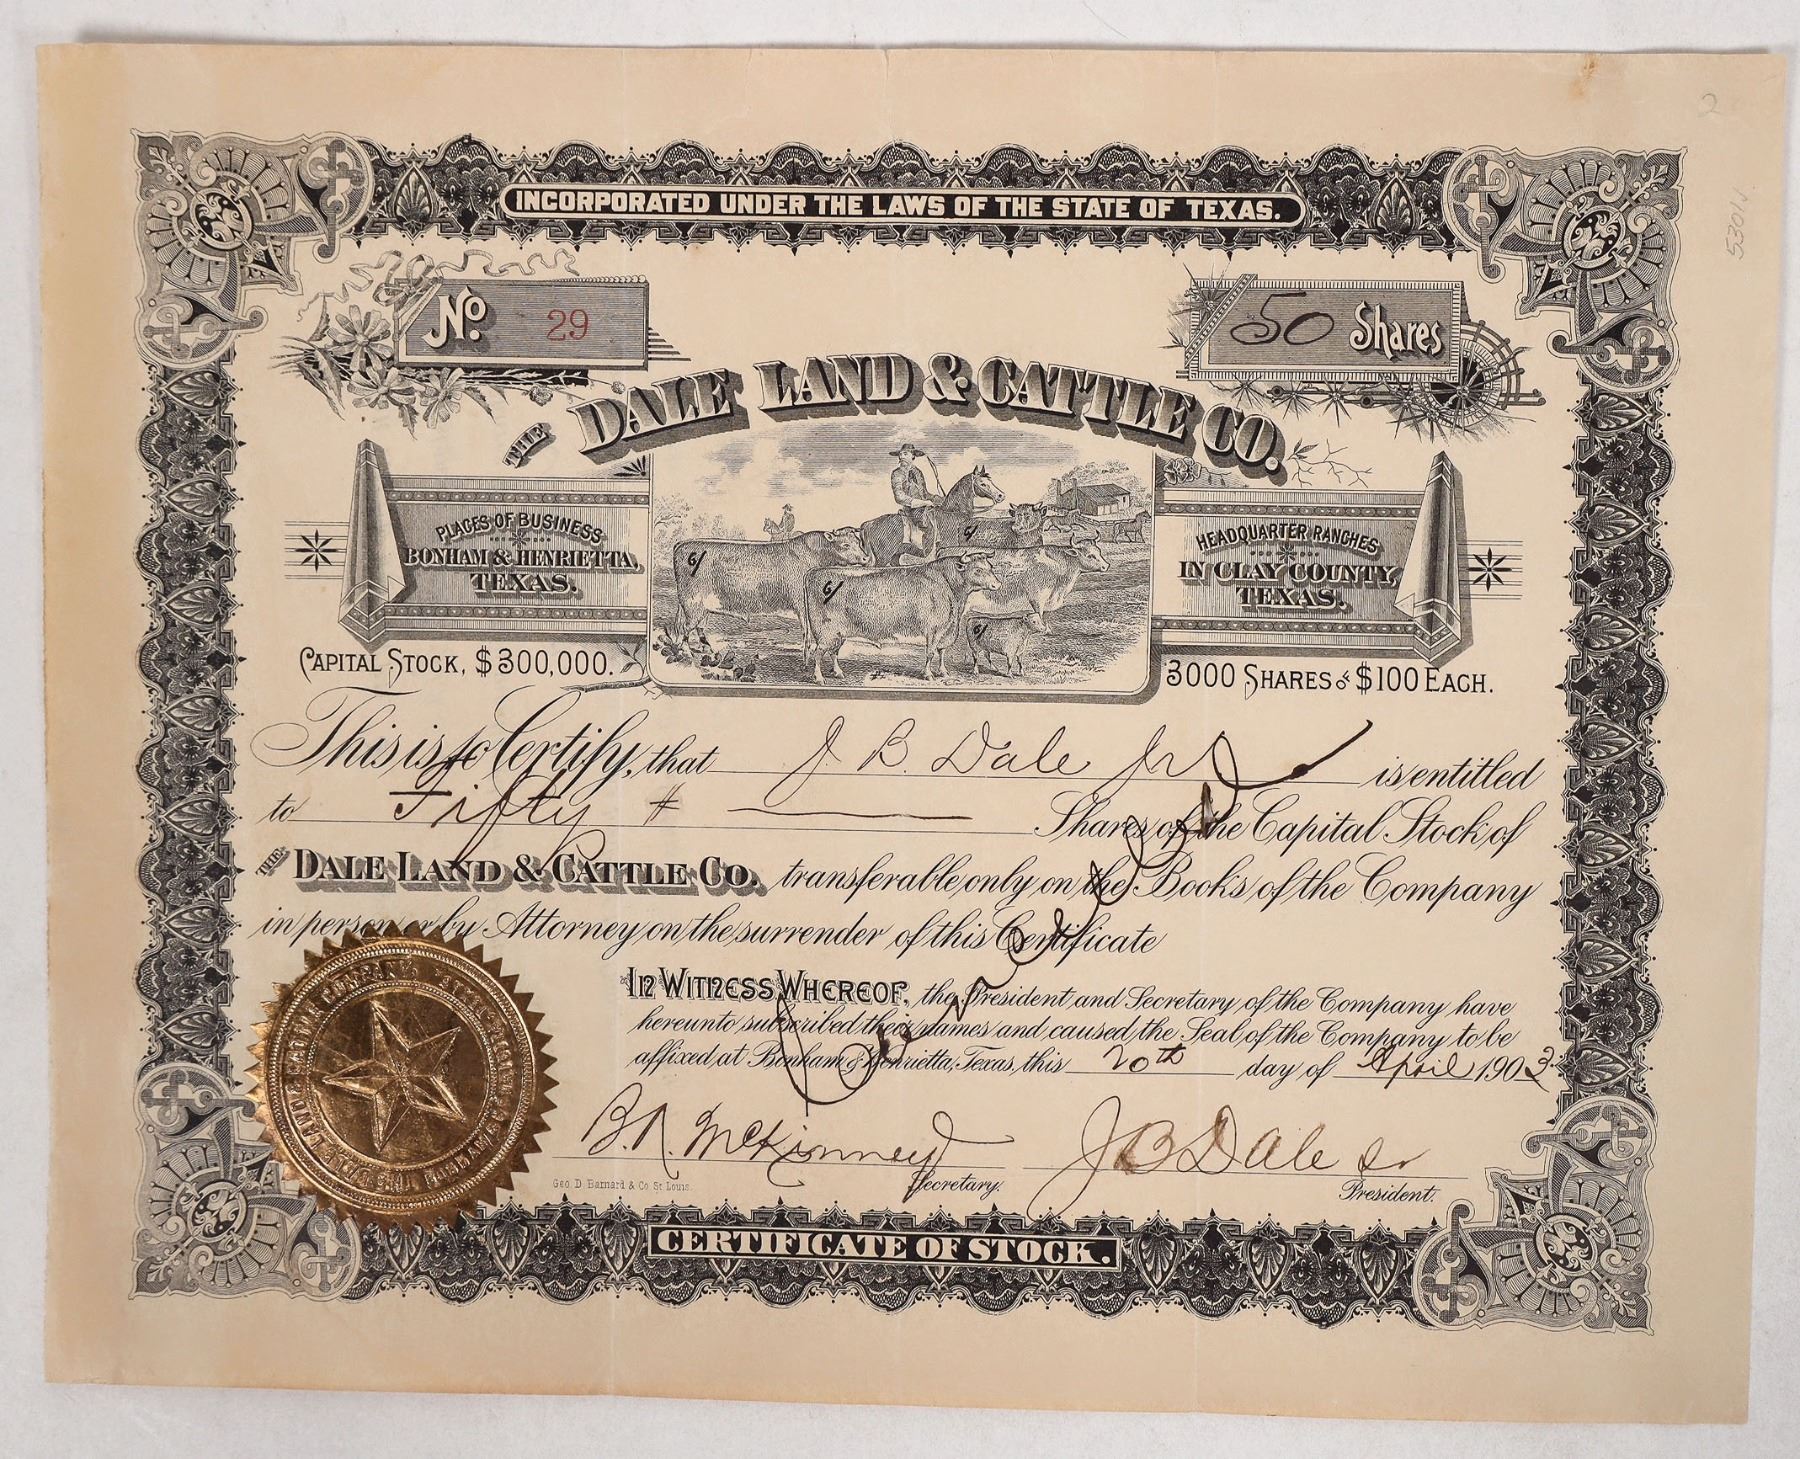 2
53011
INCORPORATED UNDER THE LAWS OF THE STATE OF TEXAS.
No. 29
50 Shares
THE DALE LAND & CATTLE CO.
PLACES OF BUSINESS
BONHAM & HENRIETTA,
TEXAS.
HEADQUARTER RANCHES
IN CLAY COUNTY,
TEXAS.
6/
6/
6/
6/
CAPITAL STOCK, $300,000.
3000 SHARES OF $100 EACH.
This is to Certify, that J B. Dale Jr is entitled
to Fifty # Shares of the Capital Stock of
THE DALE LAND & CATTLE CO. transferable only on the Books of the Company
in person or by Attorney on the surrender of this Certificate
Cancelled
In Witness Whereof, the President and Secretary of the Company have
hereunto subscribed their names and caused the Seal of the Company to be
affixed at Bonham & Henrietta, Texas, this 20th day of April 1903
B. R. McKinney
Secretary.
J B Dale Sr
President.
Geo. D. Barnard & Co. St. Louis.
LAND & CATTLE COMPANY
CERTIFICATE OF STOCK.